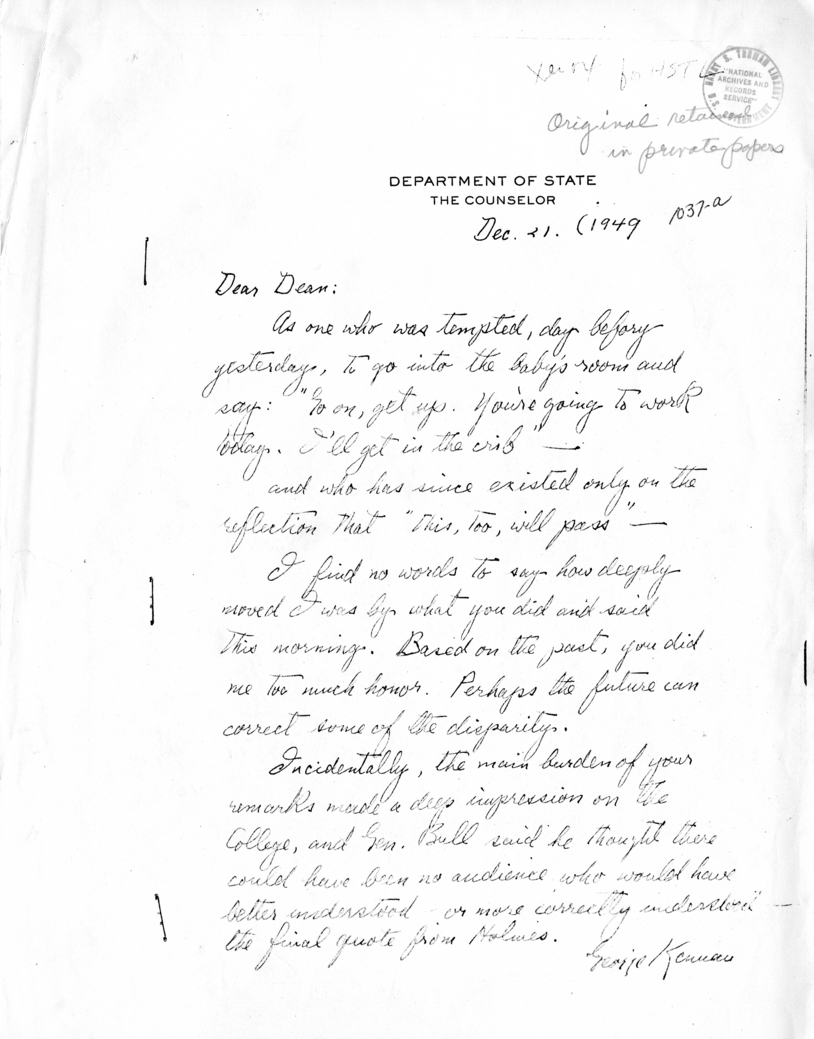 Xerox for HSTL
HARRY S. TRUMAN LIBRARY
"NATIONAL
ARCHIVES AND
RECORDS
SERVICE"
U.S. GOVERNMENT
Original retained
in private papers
DEPARTMENT OF STATE
THE COUNSELOR
1037-a
Dec. 21. (1949
Dear Dean:
As one who was tempted, day before
yesterday, to go into the baby's room and
say: "Go on, get up. You're going to work
today. I'll get in the crib" —
and who has since existed only on the
reflection that "this, too, will pass" —
I find no words to say how deeply
moved I was by what you did and said
this morning. Based on the past, you did
me too much honor. Perhaps the future can
correct some of the disparity.
Incidentally, the main burden of your
remarks made a deep impression on the
College, and Gen. Bull said he thought there
could have been no audience who would have
better understood - or more correctly understood" —
the final quote from Holmes.
George Kennan